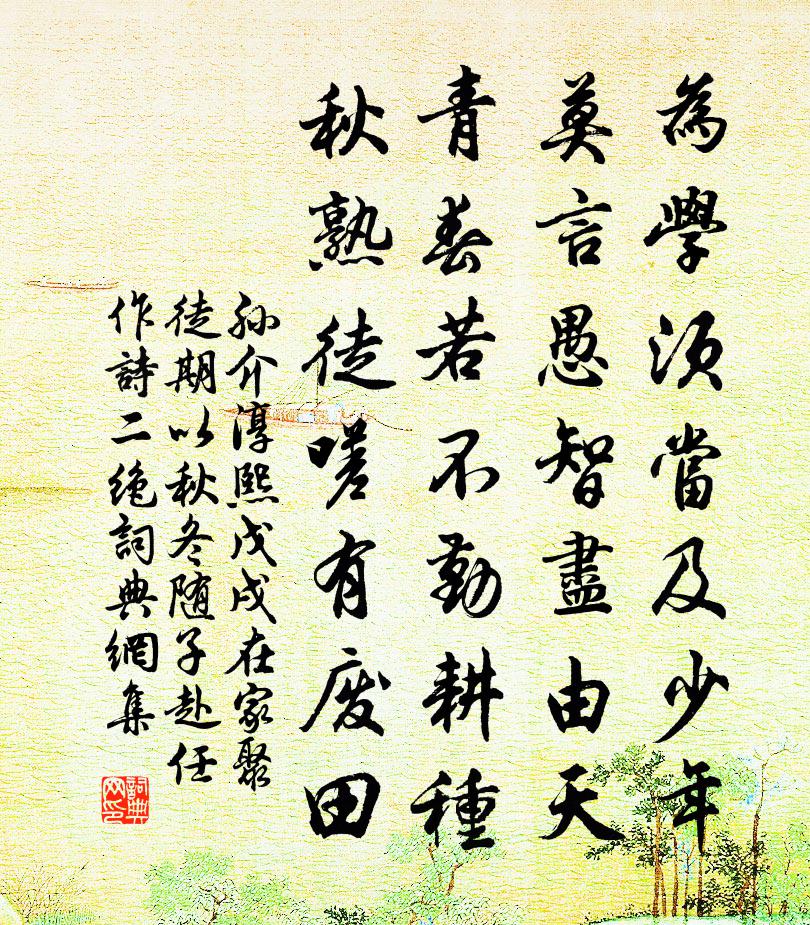 為學須當及少年
莫言愚智盡由天
青春若不勤耕種
秋熟徒嗟有废田
孙介淳熙戊戌在家聚
徒期以秋冬随子赴任
作詩二絶詞典網集
詞典网印